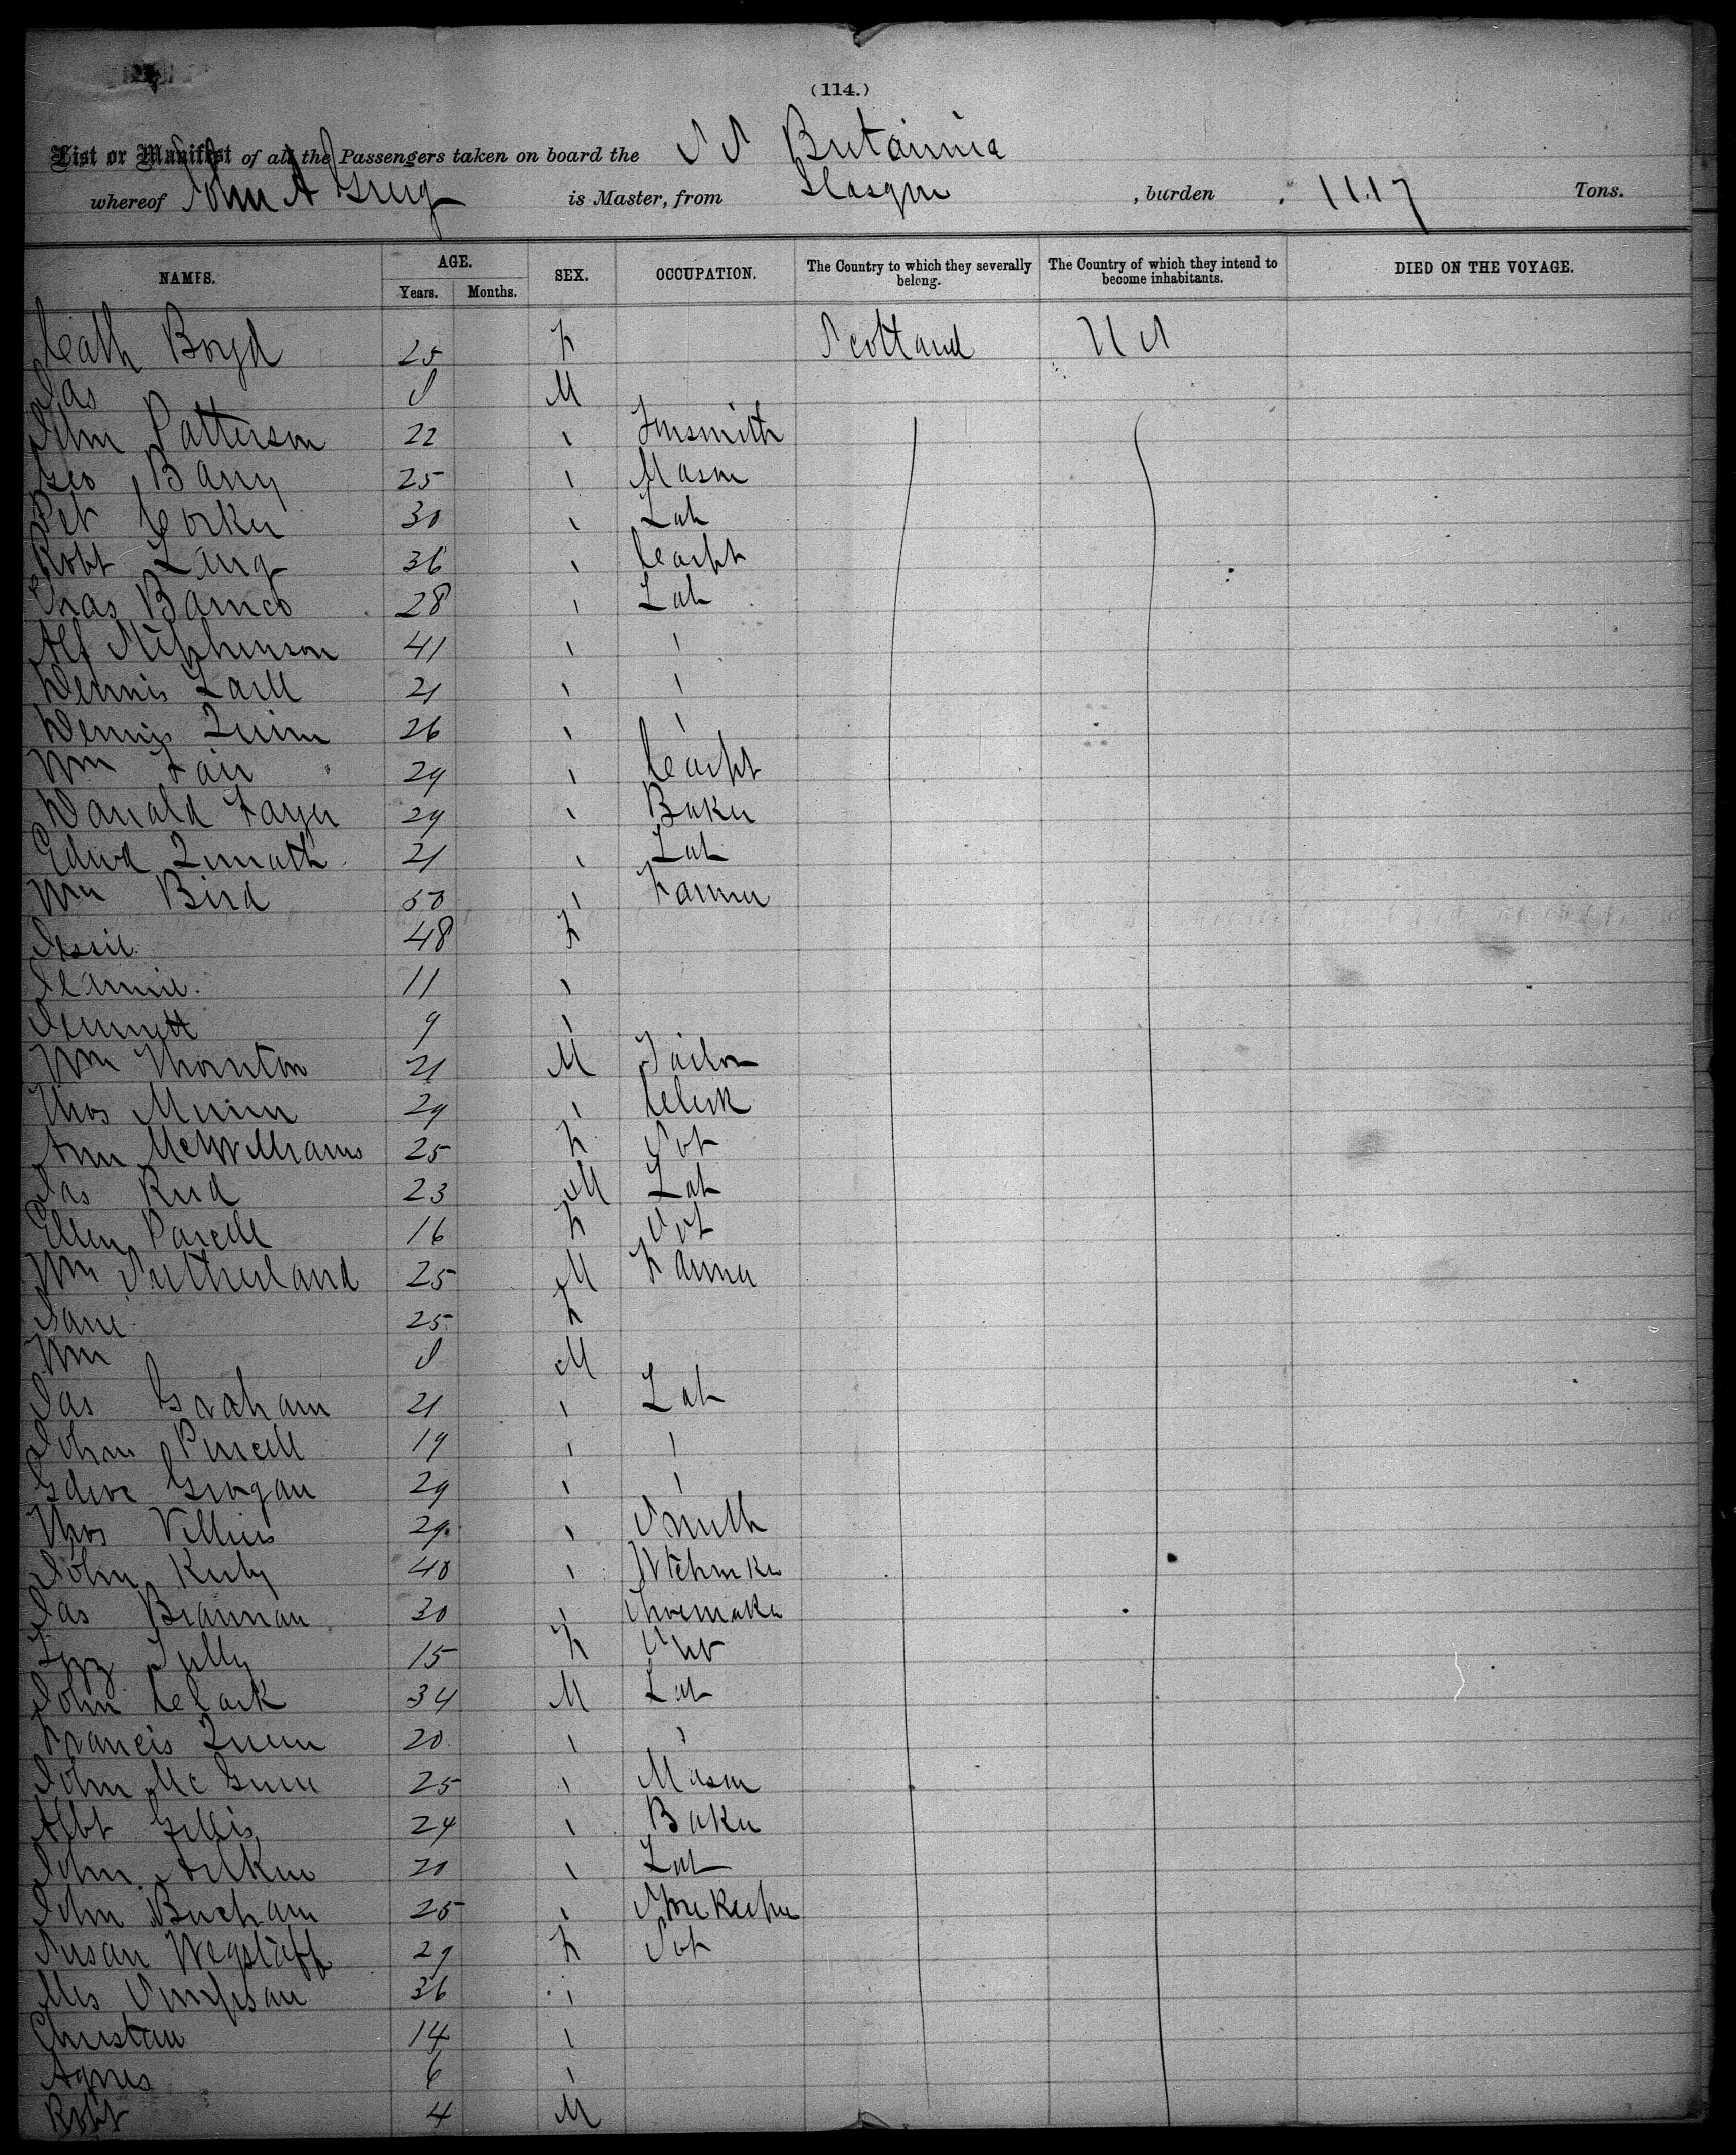 (114.)
List or Manifest of all the Passengers taken on board the S S Britannia
whereof John A Greig is Master, from Glasgow , burden 1117 Tons.
NAMES. AGE. Years. Months. SEX. OCCUPATION. The Country to which they severally belong. The Country of which they intend to become inhabitants. DIED ON THE VOYAGE.
Cath Boyd 25 F Scotland U S
Jas M
John Patterson 22 " Tinsmith
Geo Barry 25 " Mason
Pet Corker 30 " Lab
Robt Lang 36 " Carpt
Chas 28 " Lab
Alf Stephenson 41 " "
Dennis 21 " "
Dennis Quinn 26 " "
Wm Fair 29 " Carpt
Donald 29 " Baker
Edwd 21 " Lab
Wm Bird 50 " Farmer
Jessie 48 F
Jeannie 11 "
Jennett 9 "
Wm Thornton 21 M Tailor
Thos 29 " Clerk
Ann McWilliams 25 F
Jas Reid 23 M Lab
Ellen Purcell 16 F
Wm Sutherland 25 M Farmer
Jane 25 F
Wm M
Jas Graham 21 " Lab
John Purcell 19 " "
Grogan 29 " "
Thos 29 " Smith
John 40 "
Jas Brannan 30 " Shoemaker
Lizz Tully 15 F
John Clark 34 M Lab
Francis Quinn 20 " "
John Mc 25 " Mason
Albt Gillis 24 " Baker
John Aitken 20 " Lab
John 25 "
Susan Wagstaff 29 F
Mrs Simpson 36 "
14 "
Agnes 6 "
Robt 4 M